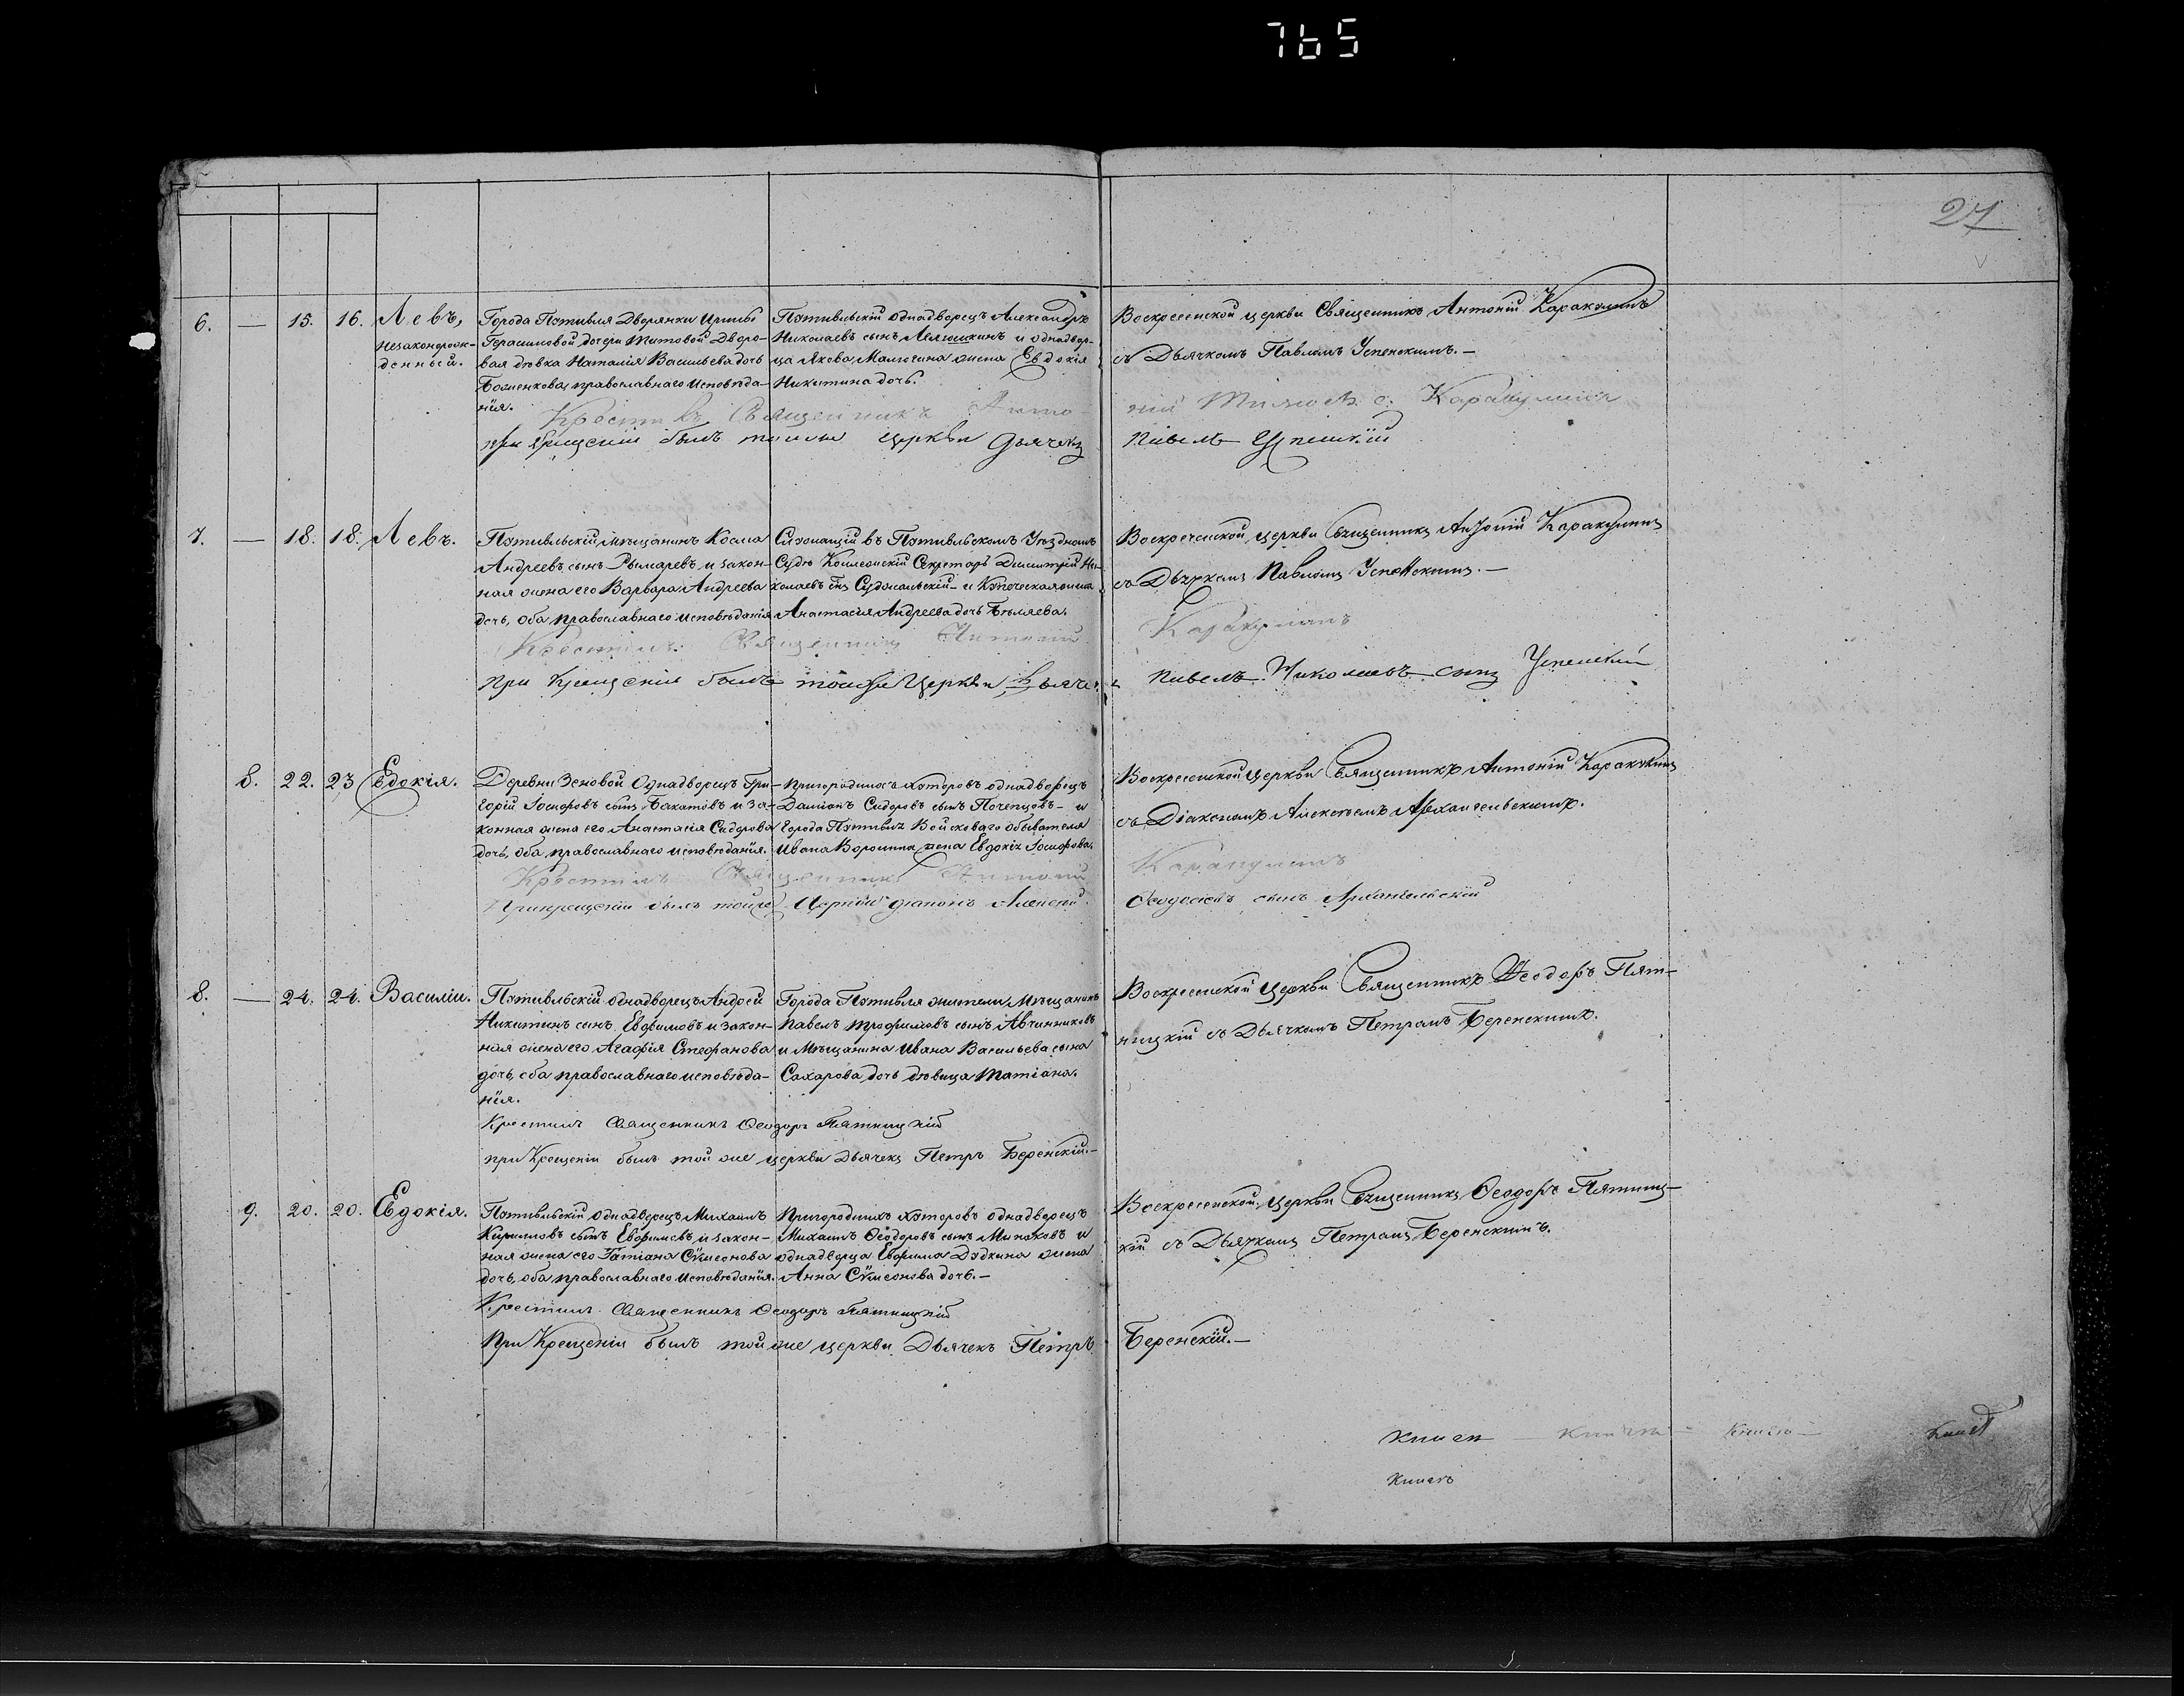 765
27
6. — 15. 16. Левъ,
незаконорож-
денный.
Города Путивля Дворянки Ирины
Герасимовой дочери Титовой Дворо-
вая дѣвка Наталія Васильева дочь
православнаго исповѣда-
нія.
Путивльскій однадворецъ Александръ
Николаевъ сынъ и однадвор-
ца Якова жена Евдокія
Никитина дочь.
Воскресенской церкви Священникъ Антоній Каракулинъ
съ Дьячкомъ Павломъ Успенскимъ. —
Крестилъ Священникъ Анто-
ній Каракулинъ
при крещеніи былъ тойже церкви Дьячекъ
Павелъ Успенскій
7. — 18. 18. Левъ.
Путивльскій мѣщанинъ Косма
Андреевъ сынъ Рымаревъ, и закон-
ная жена его Варвара Андреева
дочь, оба православнаго исповѣданія
Служащій въ Путивльскомъ Уѣздномъ
Судѣ Коллежскій Секретарь Димитрій Ни-
колаевъ сынъ и Купеческая жена
Анастасія Андреева дочь Бѣляева.
Воскресенской церкви Священникъ Антоній Каракулинъ
съ Дьячкомъ Павломъ Успенскимъ. —
Крестилъ Священникъ Антоній
Каракулинъ
при крещеніи былъ тойже церкви Дьяче
Павелъ Николаевъ сынъ Успенскій
8. 22. 23 Евдокія.
Деревни Зеновой Однадворецъ Гри-
горій Іосифовъ сынъ и за-
конная жена его Анастасія Сидорова
дочь, оба православнаго исповѣданія.
Пригородныхъ хуторовъ однадворецъ
Даміанъ Сидоровъ сынъ Поченцовъ — и
города Путивля Войсковаго обывателя
Ивана Воронина жена Евдокія Іосифова.
Воскресенской церкви Священникъ Антоній Каракулинъ
съ Діакономъ Алексѣемъ Архангельскимъ.
Крестилъ Священникъ Антоній
Каракулинъ
При крещеніи былъ тойже Церкви діаконъ Алексѣй
Феодосіевъ сынъ Архангельскій
8. — 24. 24. Василій.
Путивльскій однадворецъ Андрей
Никитинъ сынъ Евфимовъ и закон-
ная жена его Агафія Стефанова
дочь, оба православнаго исповѣда-
нія.
Города Путивля жители, Мѣщанинъ
Павелъ Трофимовъ сынъ Авчинниковъ
и Мѣщанина Ивана Васильева сына
Сахарова дочь дѣвица Татіана.
Воскресенской церкви Священникъ Феодоръ Пят-
ницкій съ Дьячкомъ Петромъ Беренскимъ.
Крестилъ Священникъ Феодоръ Пятницкій
при Крещеніи былъ той же церкви Дьячекъ Петръ Беренскій. —
9. 20. 20. Евдокія.
Путивльскій однадворецъ Михаилъ
Кириловъ сынъ Евфимовъ и закон-
ная жена его Татіана Сѵмеонова
дочь, оба православнаго исповѣданія.
Пригородныхъ хуторовъ однадворецъ
Михаилъ Феодоровъ сынъ Минаковъ и
однадворца Евфима Дудкина жена
Анна Сѵмеонова дочь. —
Воскресенской церкви Священникъ Феодоръ Пятниц-
кій съ Дьячкомъ Петромъ Беренскимъ.
Крестилъ Священникъ Феодоръ Пятницкій
При Крещеніи былъ той же церкви Дьячекъ Петръ
Беренскій. —